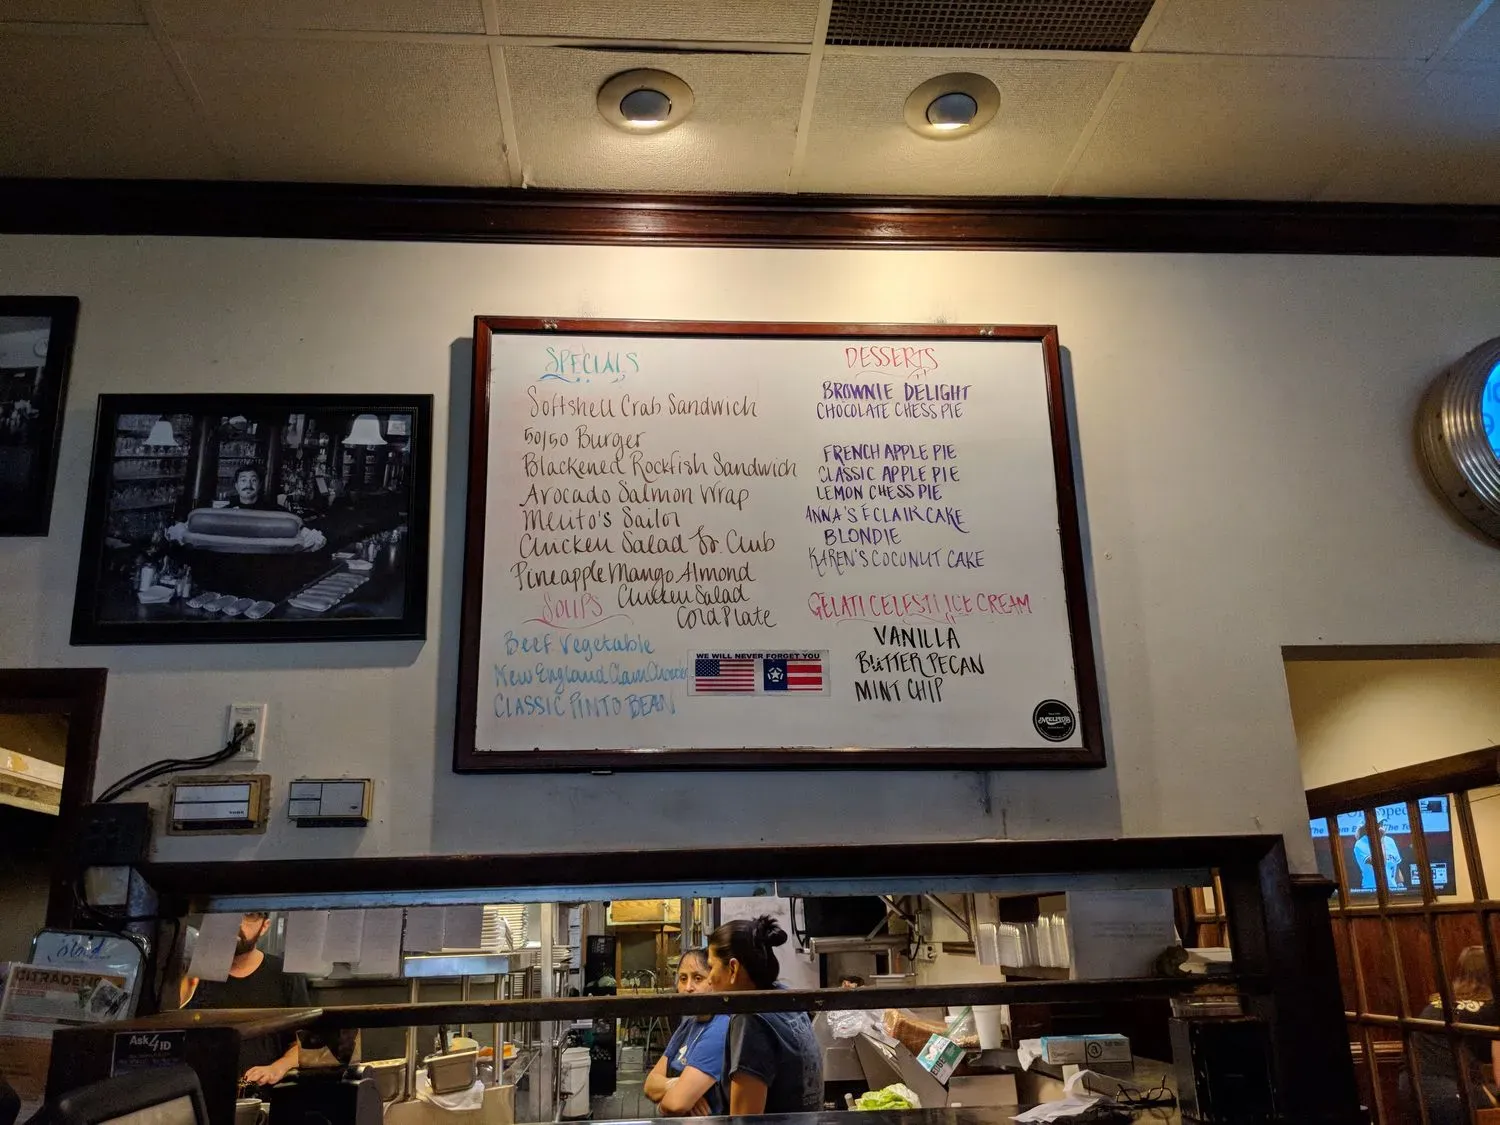 SPECIALS
Softshell Crab Sandwich
50/50 Burger
Blackened Rockfish Sandwich
Avocado Salmon Wrap
Melito's Sailor
Chicken Salad Jr. Club
Pineapple Mango Almond
Chicken Salad
Cold Plate
SOUPS
Beef Vegetable
New England Clam Chowder
CLASSIC PINTO BEAN
DESSERTS
BROWNIE DELIGHT
CHOCOLATE CHESS PIE
FRENCH APPLE PIE
CLASSIC APPLE PIE
LEMON CHESS PIE
ANNA'S ECLAIR CAKE
BLONDIE
KAREN'S COCONUT CAKE
GELATI CELESTI ICE CREAM
VANILLA
BUTTER PECAN
MINT CHIP
WE WILL NEVER FORGET YOU
MELITO'S
Ask 4 ID